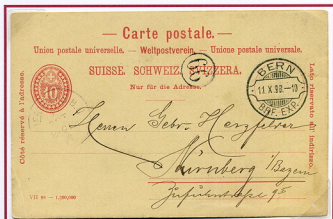 — Carte postale. —
Union postale universelle. — Weltpostverein. — Unione postale universale.
SUISSE. SCHWEIZ. SVIZZERA.
Nur für die Adresse.
Côté réservé à l'adresse.
Lato riservato all'indirizzo.
10
BERN
11.X.98.—10
BRF. EXP.
Herren Gebr. Herzfelder
Nürnberg i/Bayern
VII 98 — 1,200,000